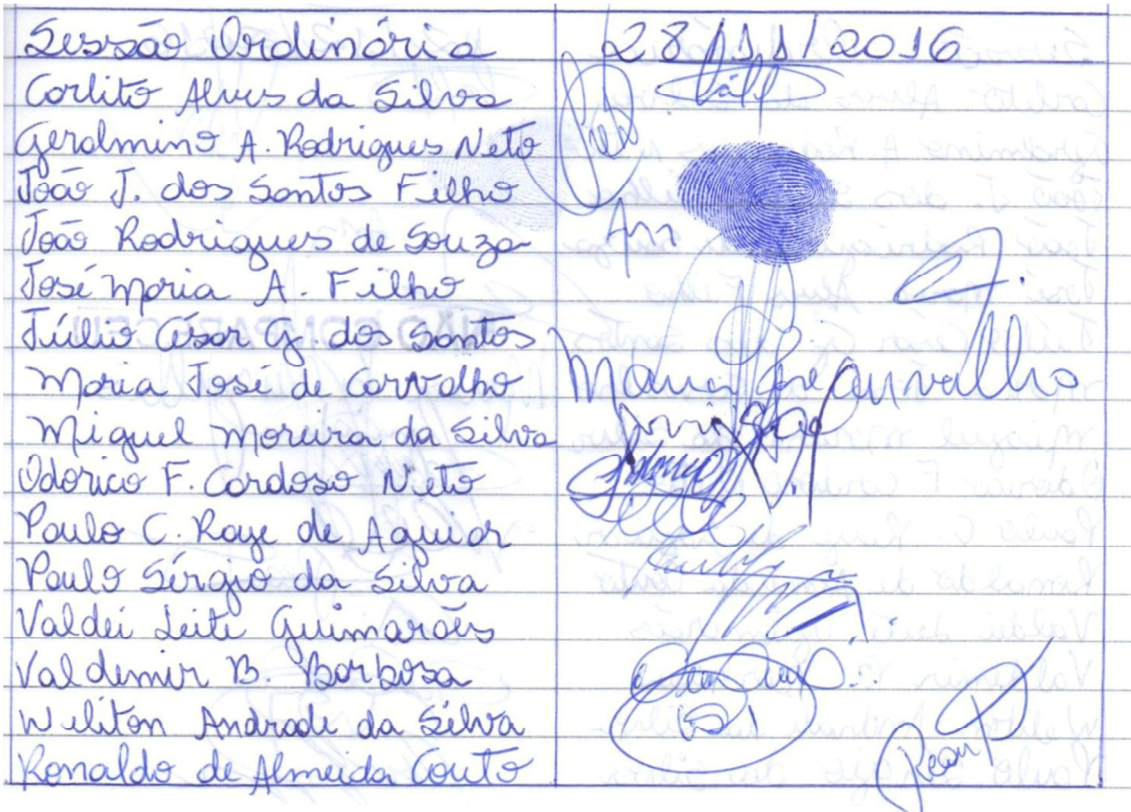 Sessão Ordinária 28/11/2016
Carlito Alves da Silva
Geralmino A. Rodrigues Neto
João J. dos Santos Filho
João Rodrigues de Souza
José Maria A. Filho
Júlio César G. dos Santos
Maria José de Carvalho Maria José Carvalho
Miguel Moreira da Silva
Odorico F. Cardoso Neto
Paulo C. Raye de Aguiar
Paulo Sérgio da Silva
Valdei Leite Guimarães
Valdemir B. Barbosa
Weliton Andrade da Silva
Ronaldo de Almeida Couto